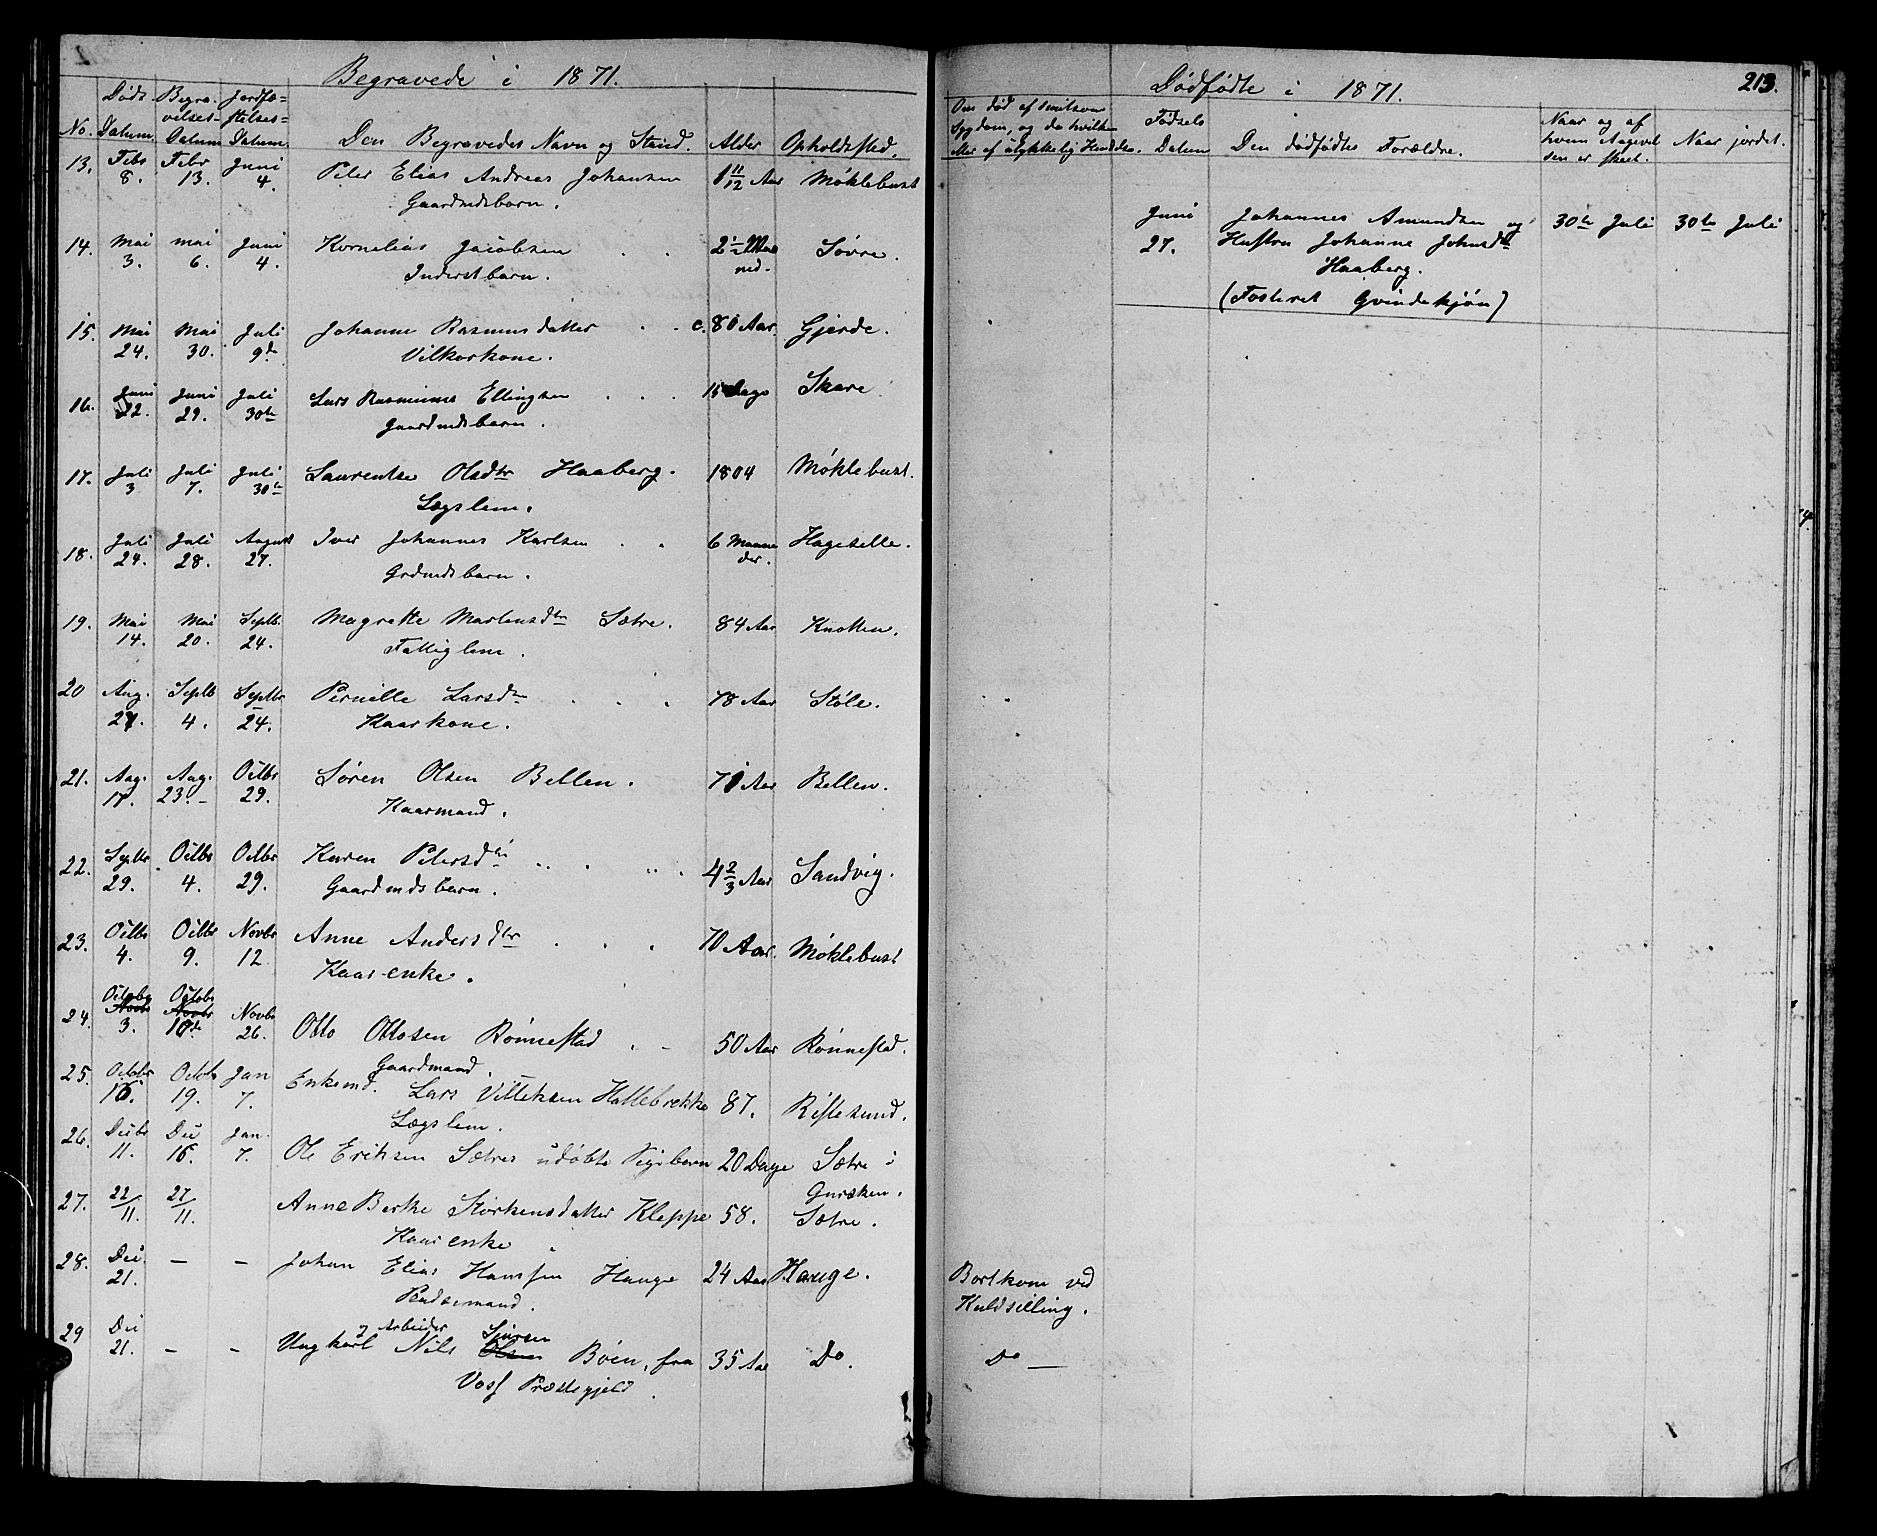 Begravede i 1871.
No. Døds Datum. Begravelses- Datum Jordfæ= stelses= Datum. Den Begravedes Navn og Stand. Alder Opholdssted.
13. Febr 8. Febr 13. Juni 4. Peter Elias Andreas Johansen 1 11/12 Aar Møklebust
Gaardmdsbarn.
14. Mai 3. Mai 6. Juni 4. Kornelius Jacobsen 2 1/2 Maa ned. Søvre.
Inderstbarn.
15. Mai 24. Mai 30. Juli 9de Johanne Rasmusdatter c. 80 Aar. Gjerde.
Vilkorkone.
16. Juni 22. Juni 29. Juli 30te Lars Rasminus Ellingsen 15 Dage Skare
Gaardmdsbarn.
17. Juli 3 Juli 7. Juli 30te Laurentse Olsdtr Haaberg. 1804 Møklebust.
Lægslem.
18. Juli 24. Juli 28. August 27. Iver Johannes Karlsen 6 Maane der. Hageselle.
Grdmdsbarn.
19. Mai 14. Mai 20. Septb. 24. Magrette Martensdtr Sætre. 84 Aar Knotten.
Fattiglem.
20 Aug. 27. Septb 4. Septbr 24. Pernille Larsdtr 78 Aar Støle.
Kaarkone.
21. Aug. 17. Aug. 23. Octbr 29. Søren Olsen Bellen. 71 Aar Bellen.
Kaarmand.
22. Septbr 29. Octbr 4. Octbr 29. Karen Petersdtr 4 2/3 Aar Sandvig.
Gaardmdsbarn.
23. Octbr 4. Octbr 9. Novbr 12 Anne Andersdtr 70 Aar. Møklebust
Kaar-enke.
24. Octobr Novbr 3. Octobr Novbr 10de Novbr 26. Otto Ottosen Rønnestad 50 Aar Rønnestad.
Gaardmand.
25. Octobr 16. Octobr 19. Jan 7. Enkemd. Lars Villeksen Hallebrekke 87. Riftesund.
Lægslem.
26. Decbr 11. Dec 16. Jan. 7. Ole Eriksen Sætres udøbte Pigebarn 20 Dage Sætre i Gursken.
27. 22/11. 27/11. Anne Berthe Størkensdatter Kleppe 58. Sætre.
Kaarenke
28. Dec. 21. — — Johan Elias Hansen Hauge 24 Aar Hauge.
Pendsmand.
29 Dec 21. — — Ungkarl & Arbeider Nils Olsen Sjursen Bøen, fra 35 Aar Do.
Voss Præstegjeld.
213.
Dødfødte i 1871.
Om død af smitsom Sygdom, og da hvilken eller af ulykkelig Hændelse. Fødsels Datum Den dødfødtes Forældre. Naar og af hvem Angivelsen er skeet. Naar jordet.
Juni 27. Johannes Amundsen og 30te Juli 30te Juli
Hustru Johanne Johnsdtr
Haaberg.
(Fosteret Qvindekjøn)
Bortkom ved
Kuldseiling.
Do —